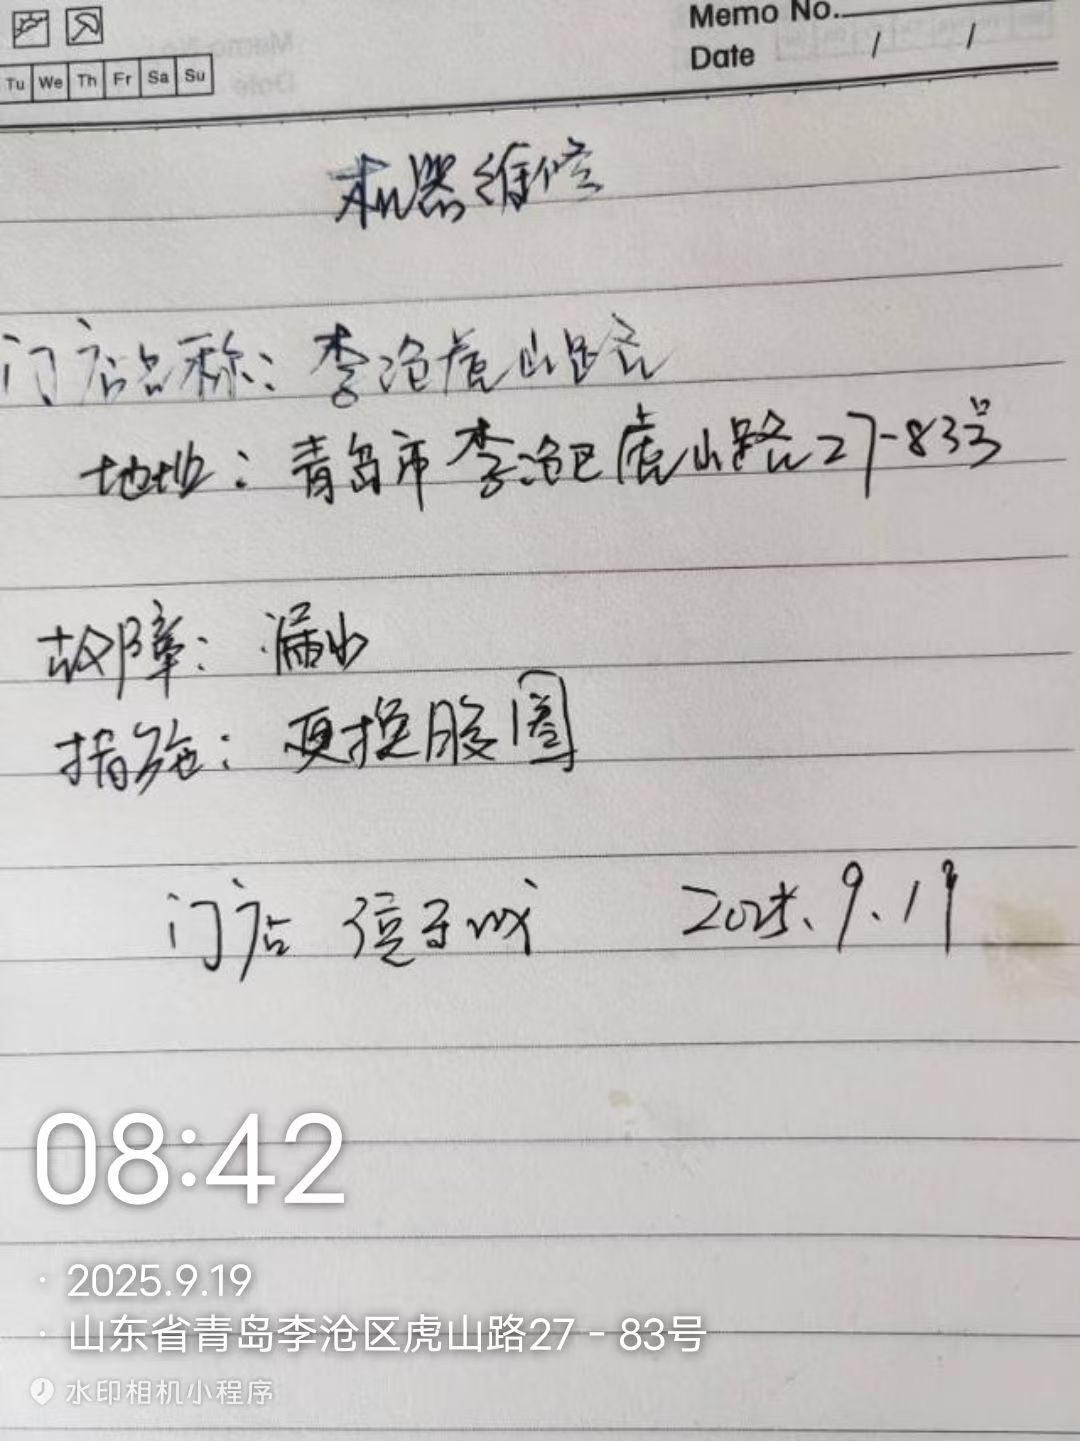 Memo No.
Date / /
Tu We Th Fr Sa Su
机器维修
门店名称：李沧虎山路店
地址：青岛市李沧区虎山路27-83号
故障：漏水
措施：更换胶圈
门店 2025.9.19
08:42
2025.9.19
山东省青岛李沧区虎山路27-83号
水印相机小程序